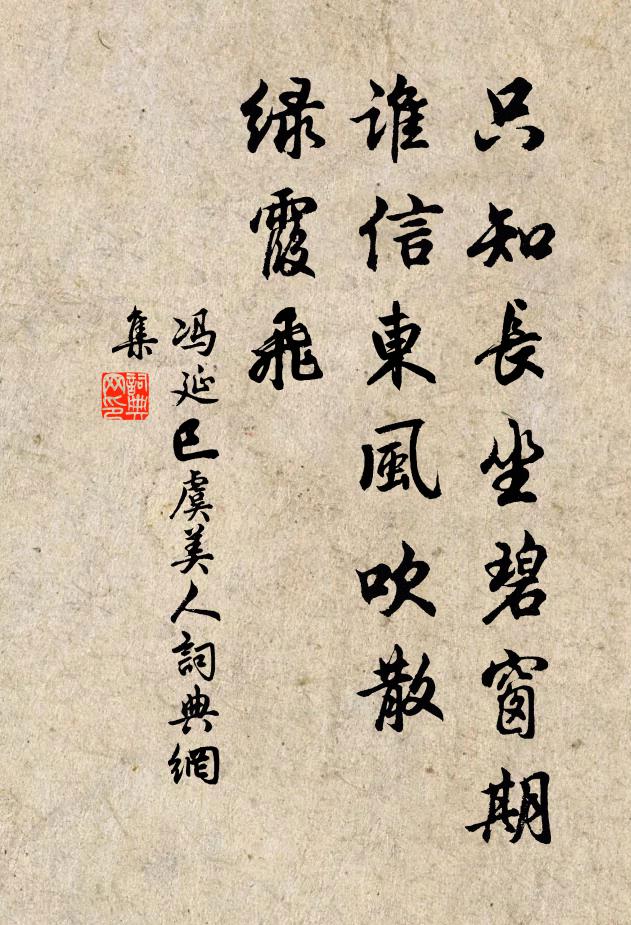 只知長坐碧窗期
誰信東風吹散
緑霞飛
冯延巳虞美人詞典網
集
詞典
网印